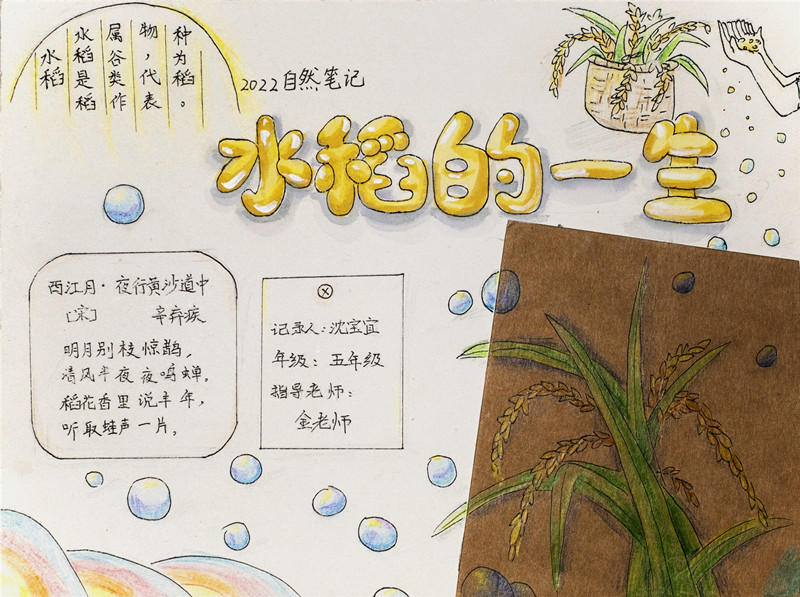 水稻
水稻是稻
属谷类作
物，代表
种为稻。
2022自然笔记
水稻的一生
西江月·夜行黄沙道中
[宋] 辛弃疾
明月别枝惊鹊，
清风半夜夜鸣蝉。
稻花香里说丰年，
听取蛙声一片。
记录人：沈宝宜
年级：五年级
指导老师：
金老师